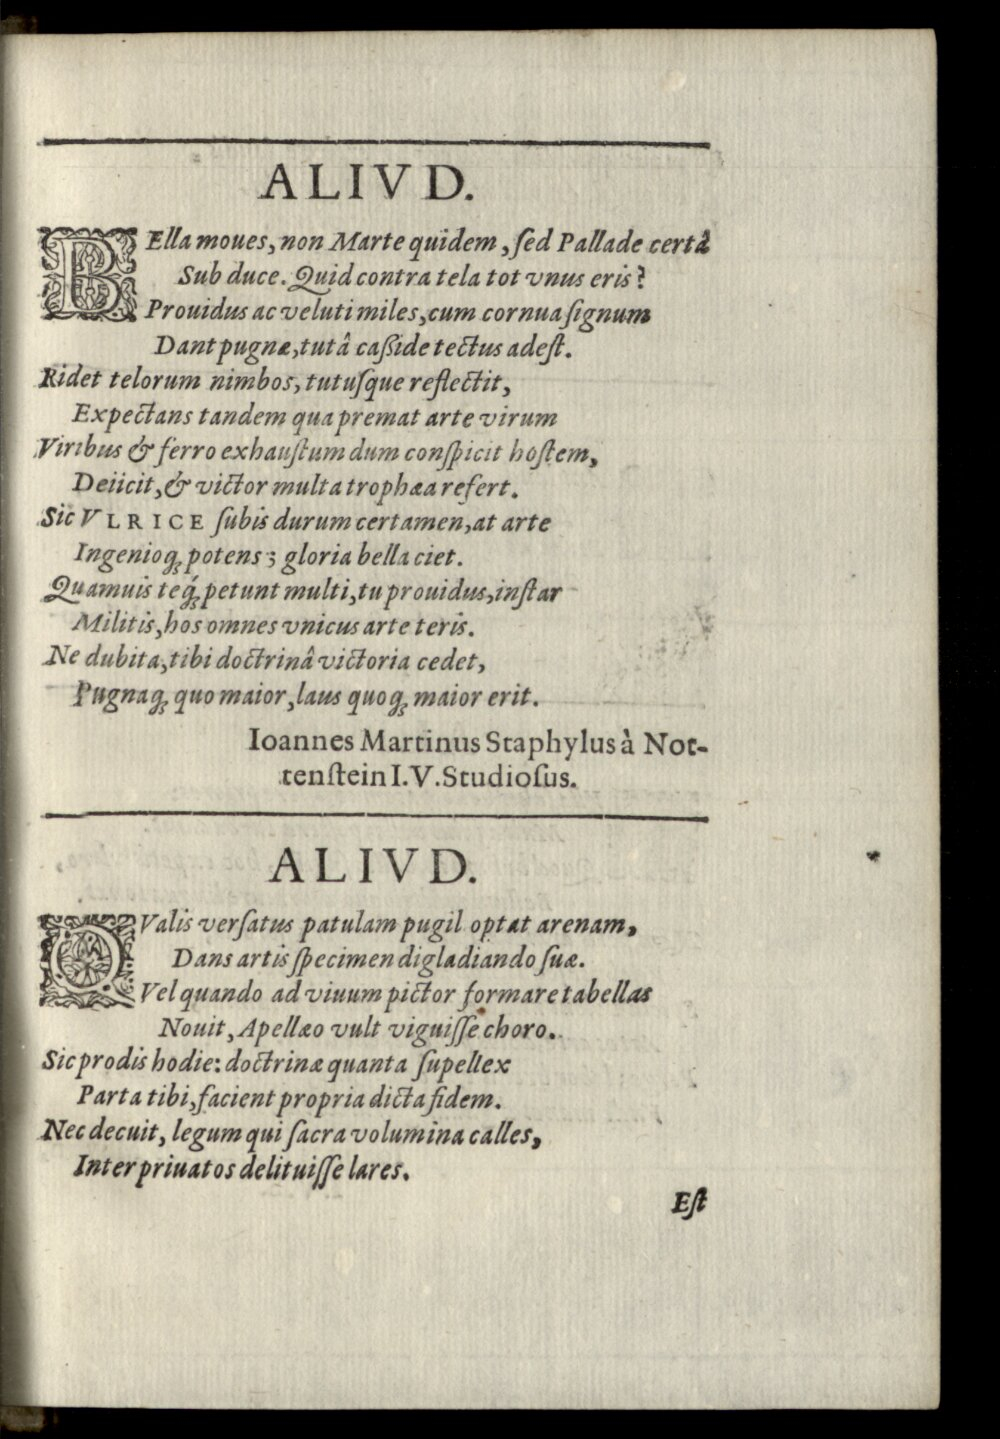 ALIVD.
BElla moues, non Marte quidem, ſed Pallade certâ
Sub duce. Quid contra tela tot vnus eris?
Prouidus ac veluti miles, cum cornua ſignum
Dant pugnæ, tutâ caßide tectus adeſt.
Ridet telorum nimbos, tutuſque reflectit,
Expectans tandem qua premat arte virum
Viribus & ferro exhauſtum dum conſpicit hoſtem,
Deiicit, & victor multa trophæa refert.
Sic VLRICE ſubis durum certamen, at arte
Ingenioq́; potens; gloria bella ciet.
Quamuis teq́; petunt multi, tu prouidus, inſtar
Militis, hos omnes vnicus arte teris.
Ne dubita, tibi doctrinâ victoria cedet,
Pugnaq; quo maior, laus quoq; maior erit.
Ioannes Martinus Staphylus à Not-
tenſtein I.V. Studioſus.
ALIVD.
QValis verſatus patulam pugil optat arenam,
Dans artis ſpecimen digladiando ſuæ.
Vel quando ad viuum pictor formare tabellas
Nouit, Apellæo vult viguiſſe choro.
Sic prodis hodie: doctrinæ quanta ſupellex
Parta tibi, facient propria dicta fidem.
Nec decuit, legum qui ſacra volumina calles,
Inter priuatos delituiſſe lares.
Eſt